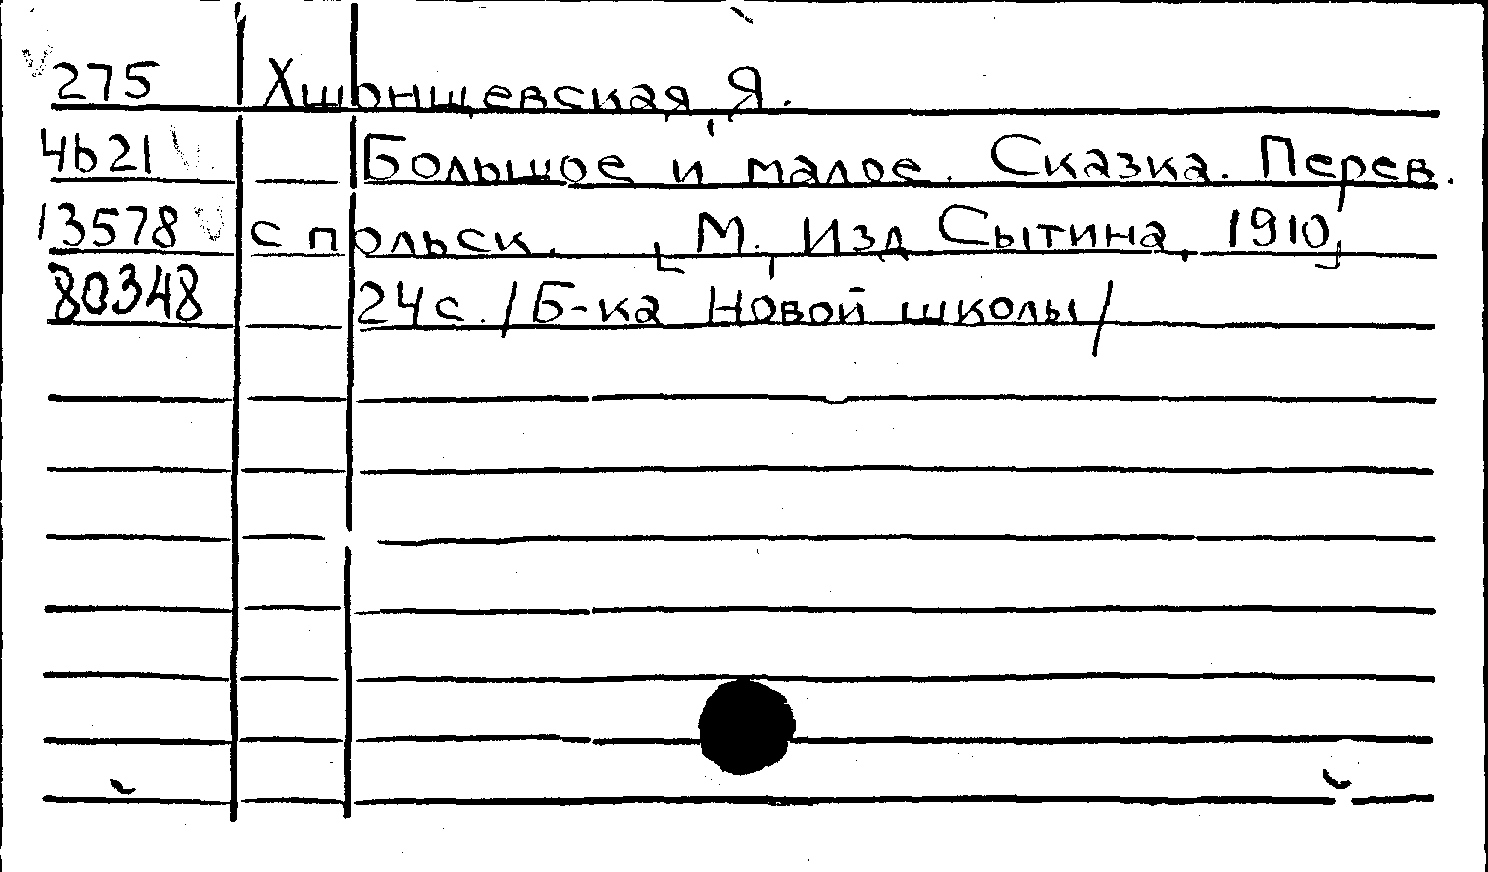 275 Хшонщевская, Я.
4b21 Большое и малое. Сказка. Перев.
13578 с польск. [М., Изд Сытина, 1910]
80348 24с. /Б-ка Новой школы/